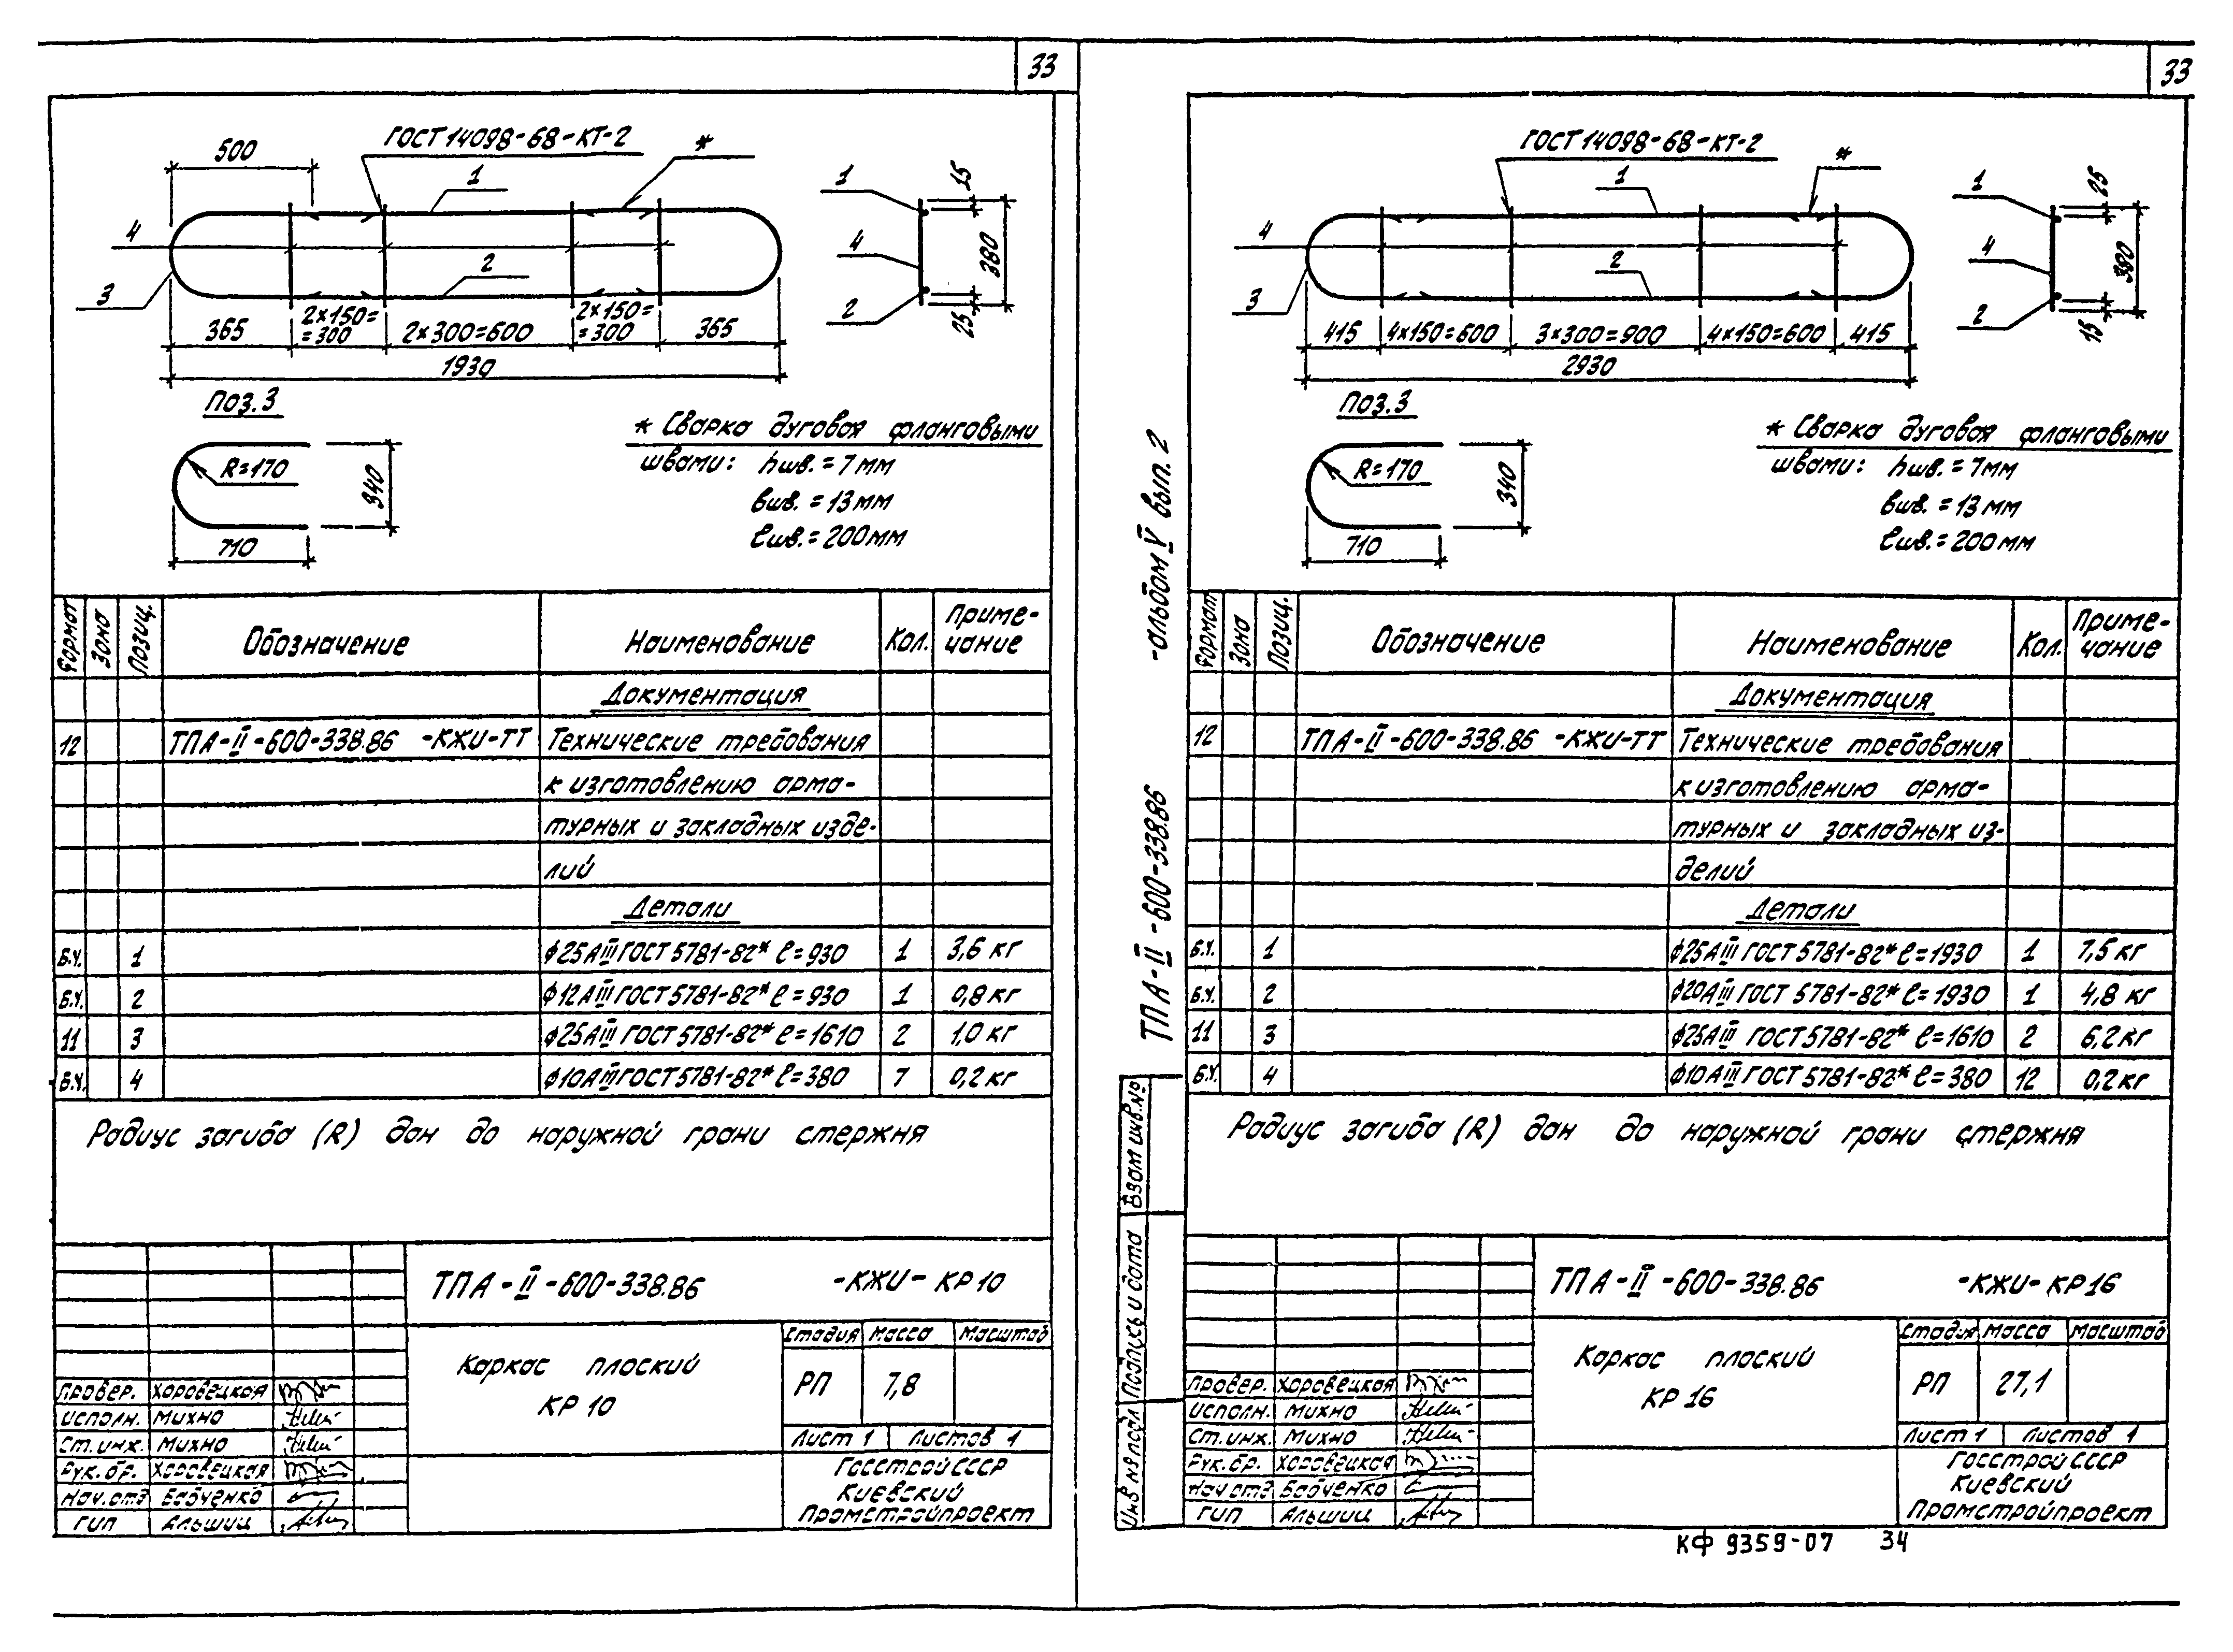 33
500
ГОСТ 14098-68-КТ-2
*
1
4
2
3
365
2×150=
=300
2×300=600
2×150=
=300
365
1930
1
4
2
15
380
25
Поз.3
R=170
340
710
* Сварка дуговая фланговыми
швами: hшв.=7мм
bшв.=13мм
ℓшв.=200мм
Формат Зона Позиц. Обозначение Наименование Кол. Приме-
чание
Документация
12 ТПА-II-600-338.86 -КЖИ-ТТ Технические требования
к изготовлению арма-
турных и закладных изде-
лий
Детали
Б.Ч. 1 ф25АIII ГОСТ 5781-82* ℓ=930 1 3,6 кг
Б.Ч. 2 ф12АIII ГОСТ 5781-82* ℓ=930 1 0,8 кг
11 3 ф25АIII ГОСТ 5781-82* ℓ=1610 2 1,0 кг
Б.Ч. 4 ф10АIII ГОСТ 5781-82* ℓ=380 7 0,2 кг
Радиус загиба (R) дан до наружной грани стержня
ТПА-II-600-338.86 -КЖИ-КР10
Каркас плоский
КР 10
Стадия Масса Масштаб
РП 7,8
Лист 1 Листов 1
Госстрой СССР
Киевский
Промстройпроект
Провер. Хоровецкая
Исполн. Михно
Ст.инж. Михно
Рук.бр. Хоровецкая
Нач.отд Бабченко
ГИП Альшиц
33
ГОСТ 14098-68-КТ-2
*
1
4
2
3
415
4×150=600
3×300=900
4×150=600
415
2930
1
4
2
25
380
15
Поз.3
R=170
340
710
* Сварка дуговая фланговыми
швами: hшв.=7мм
bшв.=13мм
ℓшв.=200мм
Формат Зона Позиц. Обозначение Наименование Кол. Приме-
чание
Документация
12 ТПА-II-600-338.86 -КЖИ-ТТ Технические требования
к изготовлению арма-
турных и закладных из-
делий
Детали
Б.Ч. 1 ф25АIII ГОСТ 5781-82* ℓ=1930 1 7,5 кг
Б.Ч. 2 ф20АIII ГОСТ 5781-82* ℓ=1930 1 4,8 кг
11 3 ф25АIII ГОСТ 5781-82* ℓ=1610 2 6,2 кг
Б.Ч. 4 ф10АIII ГОСТ 5781-82* ℓ=380 12 0,2 кг
Радиус загиба (R) дан до наружной грани стержня
ТПА-II-600-338.86 -альбом V вып. 2
Взам инв.№
Подпись и дата
Инв № подл
ТПА-II-600-338.86 -КЖИ-КР16
Каркас плоский
КР 16
Стадия Масса Масштаб
РП 27,1
Лист 1 Листов 1
Госстрой СССР
Киевский
Промстройпроект
Провер. Хоровецкая
Исполн. Михно
Ст.инж. Михно
Рук.бр. Хоровецкая
Нач отд Бабченко
ГИП Альшиц
КФ 9359-07 34